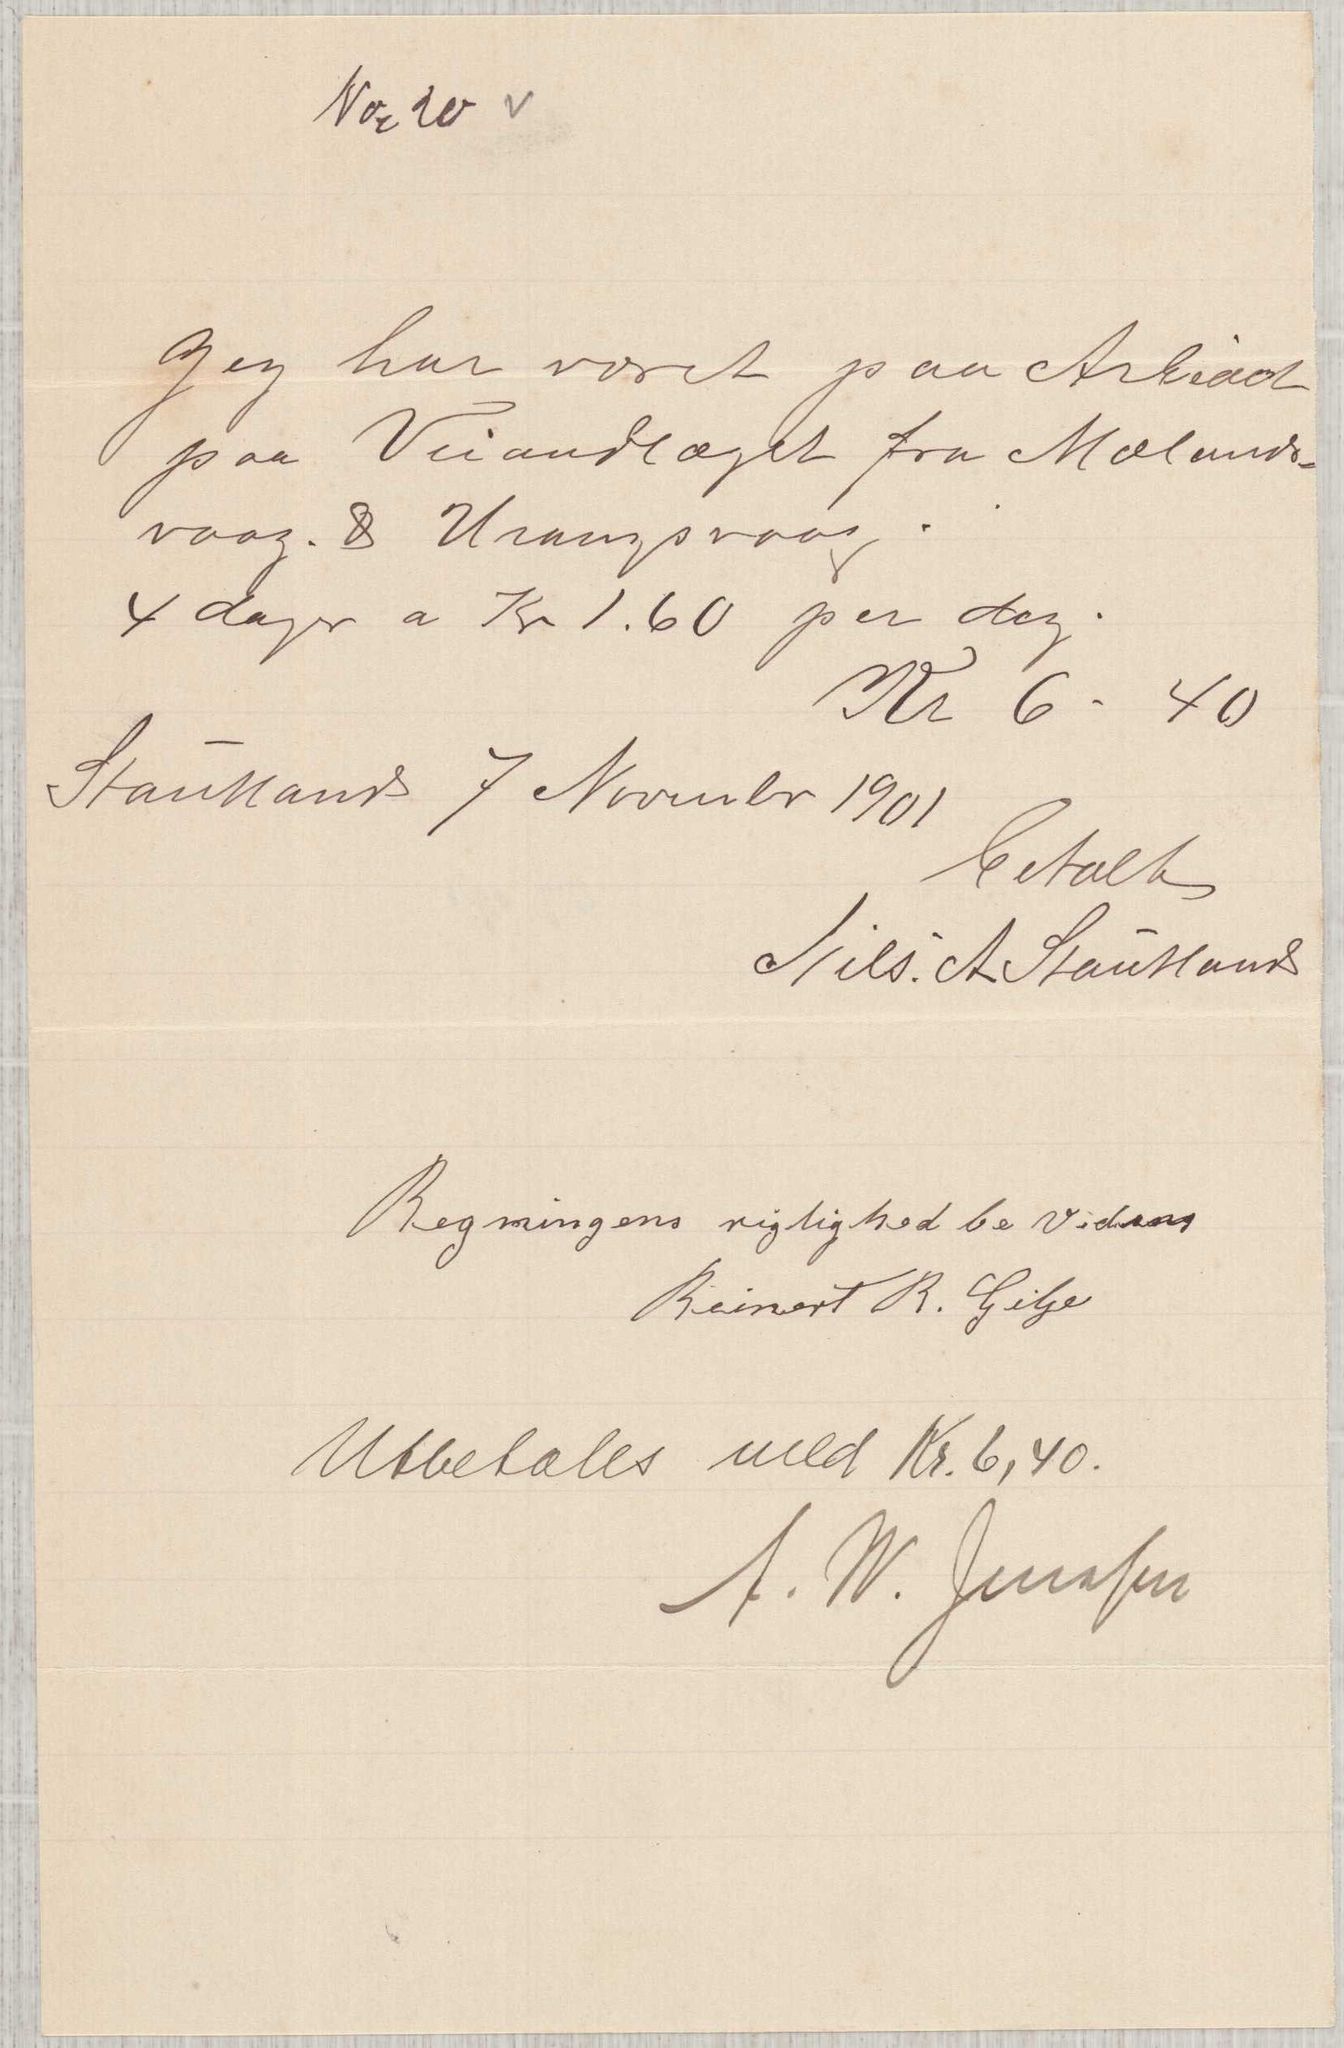 No 20 v
Jeg har været paa Arbeidet
paa Veiandlæget fra Mælands-
vaag. & Urangsvaag.
4 dager a Kr 1.60 per dag.
Kr 6 - 40
Stautland 7 November 1901
betalt
Nils. A Stautland
Regningens rigtighed bevidnes
Reinert R. Gilje
Utbetales med Kr. 6,40.
A. W. Jenssen